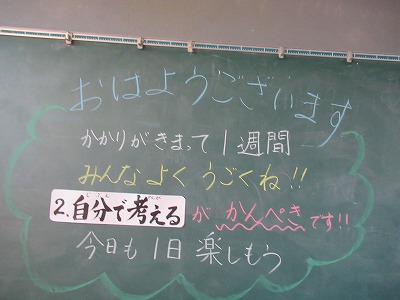 おはようございます
かかりがきまって1週間
みんなよくうごくね!!
2.自分で考えるが かんぺきです!!
今日も1日楽しもう